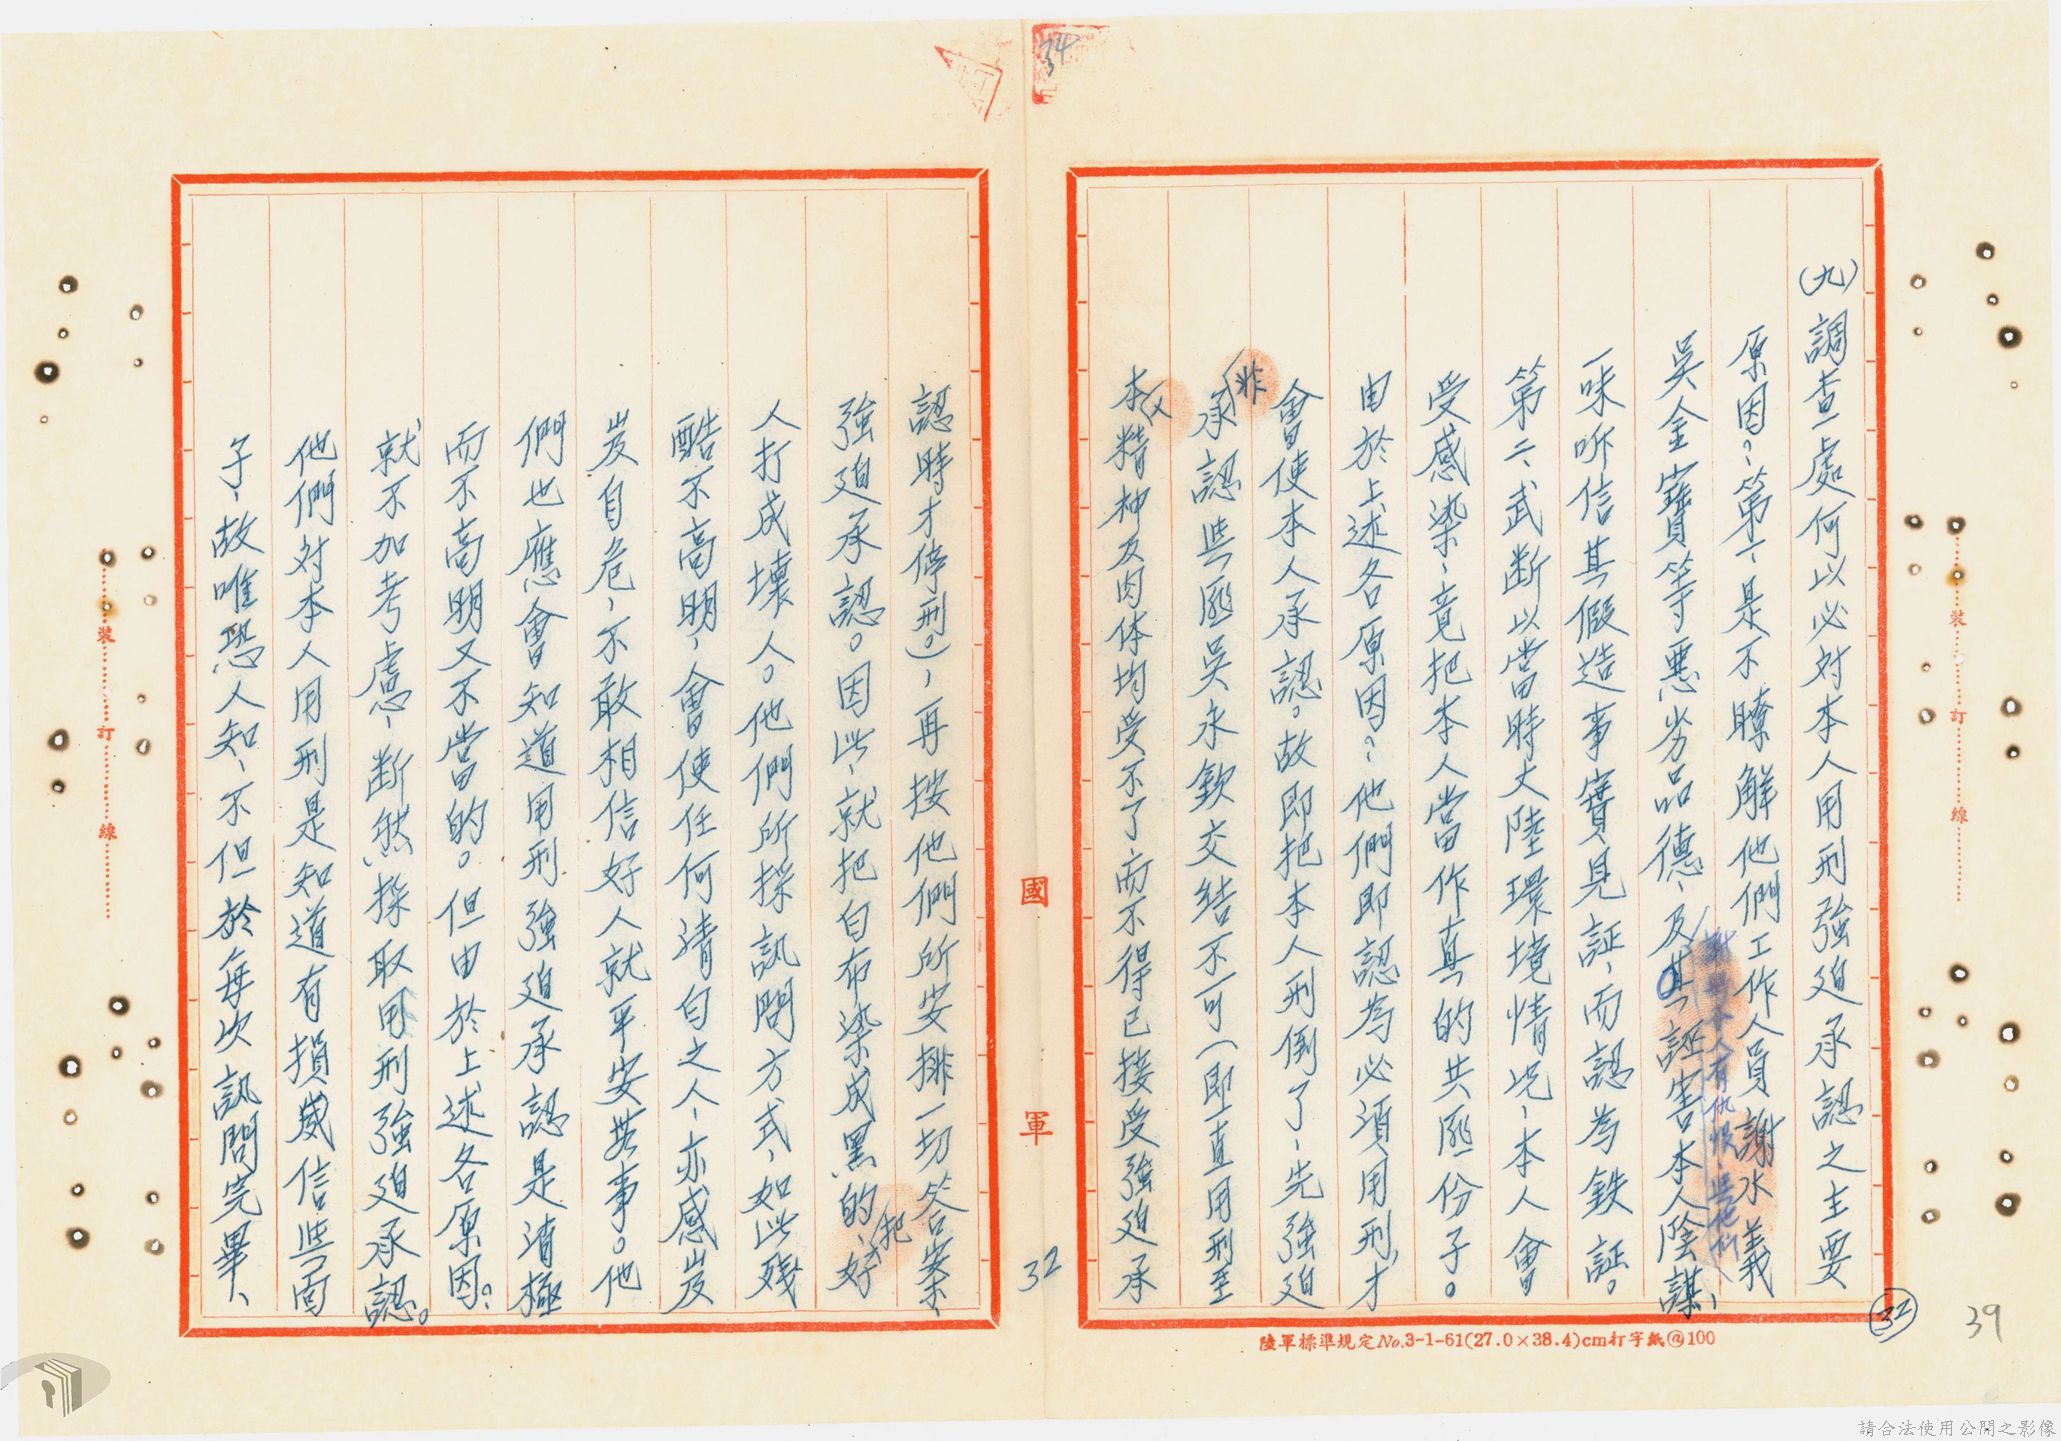 34
(九)調查處何以必对本人用刑強迫承認之主要
原因?第一、是不瞭解他們工作人員謝水義
吳金寶等惡劣品德、及其誣害本人陰謀、
對與本人有仇恨、
一味听信其假造事實見証、而認為鉄証。
第二、武断以當時大陸環境情况、本人會
受感染、竟把本人當作真的共匪份子。
由於上述各原因?他們即認為必須用刑,才
會使本人承認。故即把本人刑倒了、先強迫
承認與匪吳永欽交结不可(即一直用刑至
非
本人精神及肉体均受不了、而不得已接受強迫承
認時才停刑。),再按他們所安排一切答案、
強迫承認。因此、就把白布染成黑的、好
把
人打成壞人。他們所採訊問方式、如此残
酷不高明,會使任何清白之人、亦感岌
岌自危,不敢相信好人就平安無事。他
們也應會知道用刑強迫承認是消極
而不高明又不當的。但由於上述各原因?
就不加考慮、断然採取用刑強迫承認。
他們对本人用刑是知道有損威信與面
子,故唯恐人知、不但於每次訊問完畢、
國軍
32
32
39
陸軍標準規定No.3-1-61(27.0×38.4)cm打字紙@100
裝訂線
裝訂線
請合法使用公開之影像